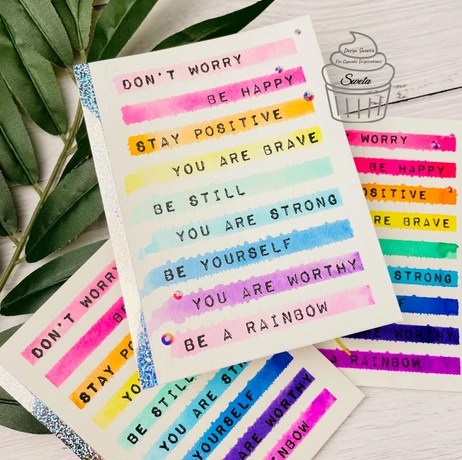 DON'T WORRY
BE HAPPY
STAY POSITIVE
YOU ARE BRAVE
BE STILL
YOU ARE STRONG
BE YOURSELF
YOU ARE WORTHY
BE A RAINBOW
For Cupcake Inspirations
Sweta
WORRY
BE HAPPY
OSITIVE
RE BRAVE
STRONG
E WORTHY
A RAINBOW
DON'T WORRY
BE
STAY PO
YO
BE STILL
YOU ARE STR
YOURSELF
ARE WORTHY
INBOW